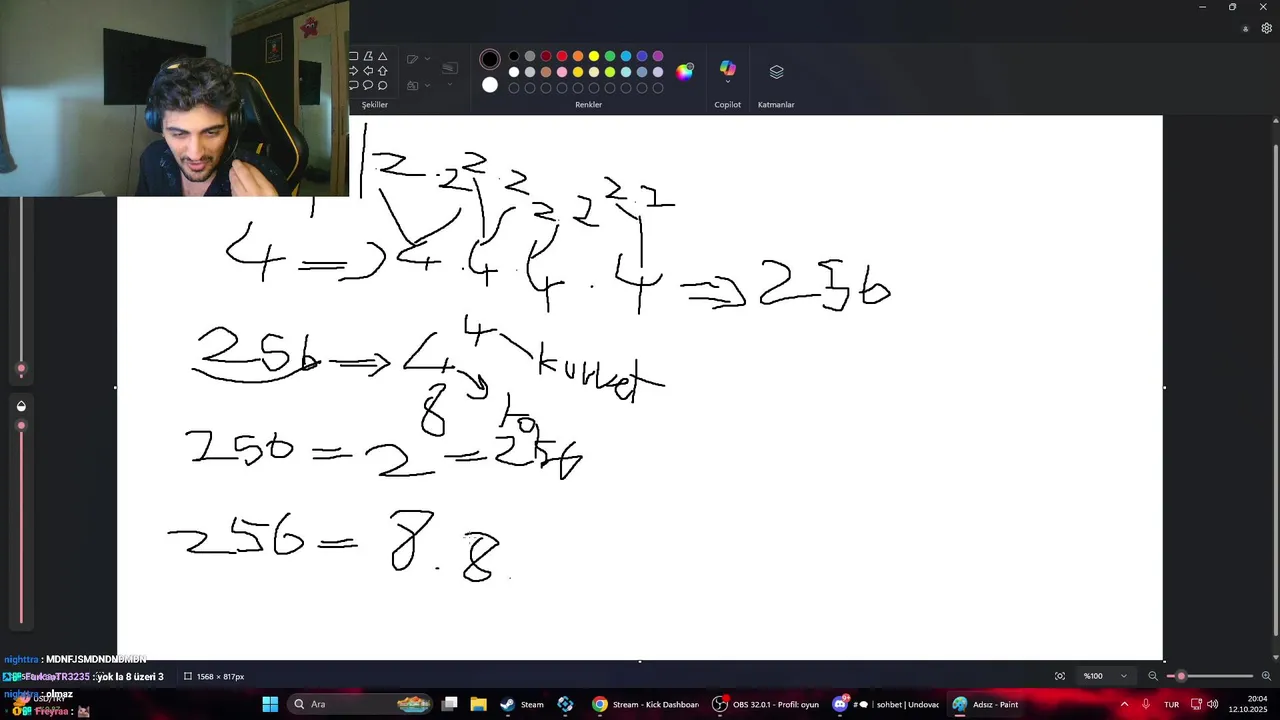 Şekiller
Renkler
Copilot
Katmanlar
2 . 2 2 . 2 2 . 2 2 . 2
4 => 4 . 4 . 4 . 4 => 256
256 => 4 4 kuvvet
8
256 = 2 = 256
256 = 8 . 8 .
nighttra : MDNFJSMDNDNDMDN
FurkanTR3235 : yok la 8 üzeri 3
nighttra : olmaz
Freyraa :
USD/TRY
1568 × 817px
%100
Ara
Steam
Stream - Kick Dashboar
OBS 32.0.1 - Profil: oyun
sohbet | Undovac
Adsız - Paint
TUR
20:04
12.10.2025